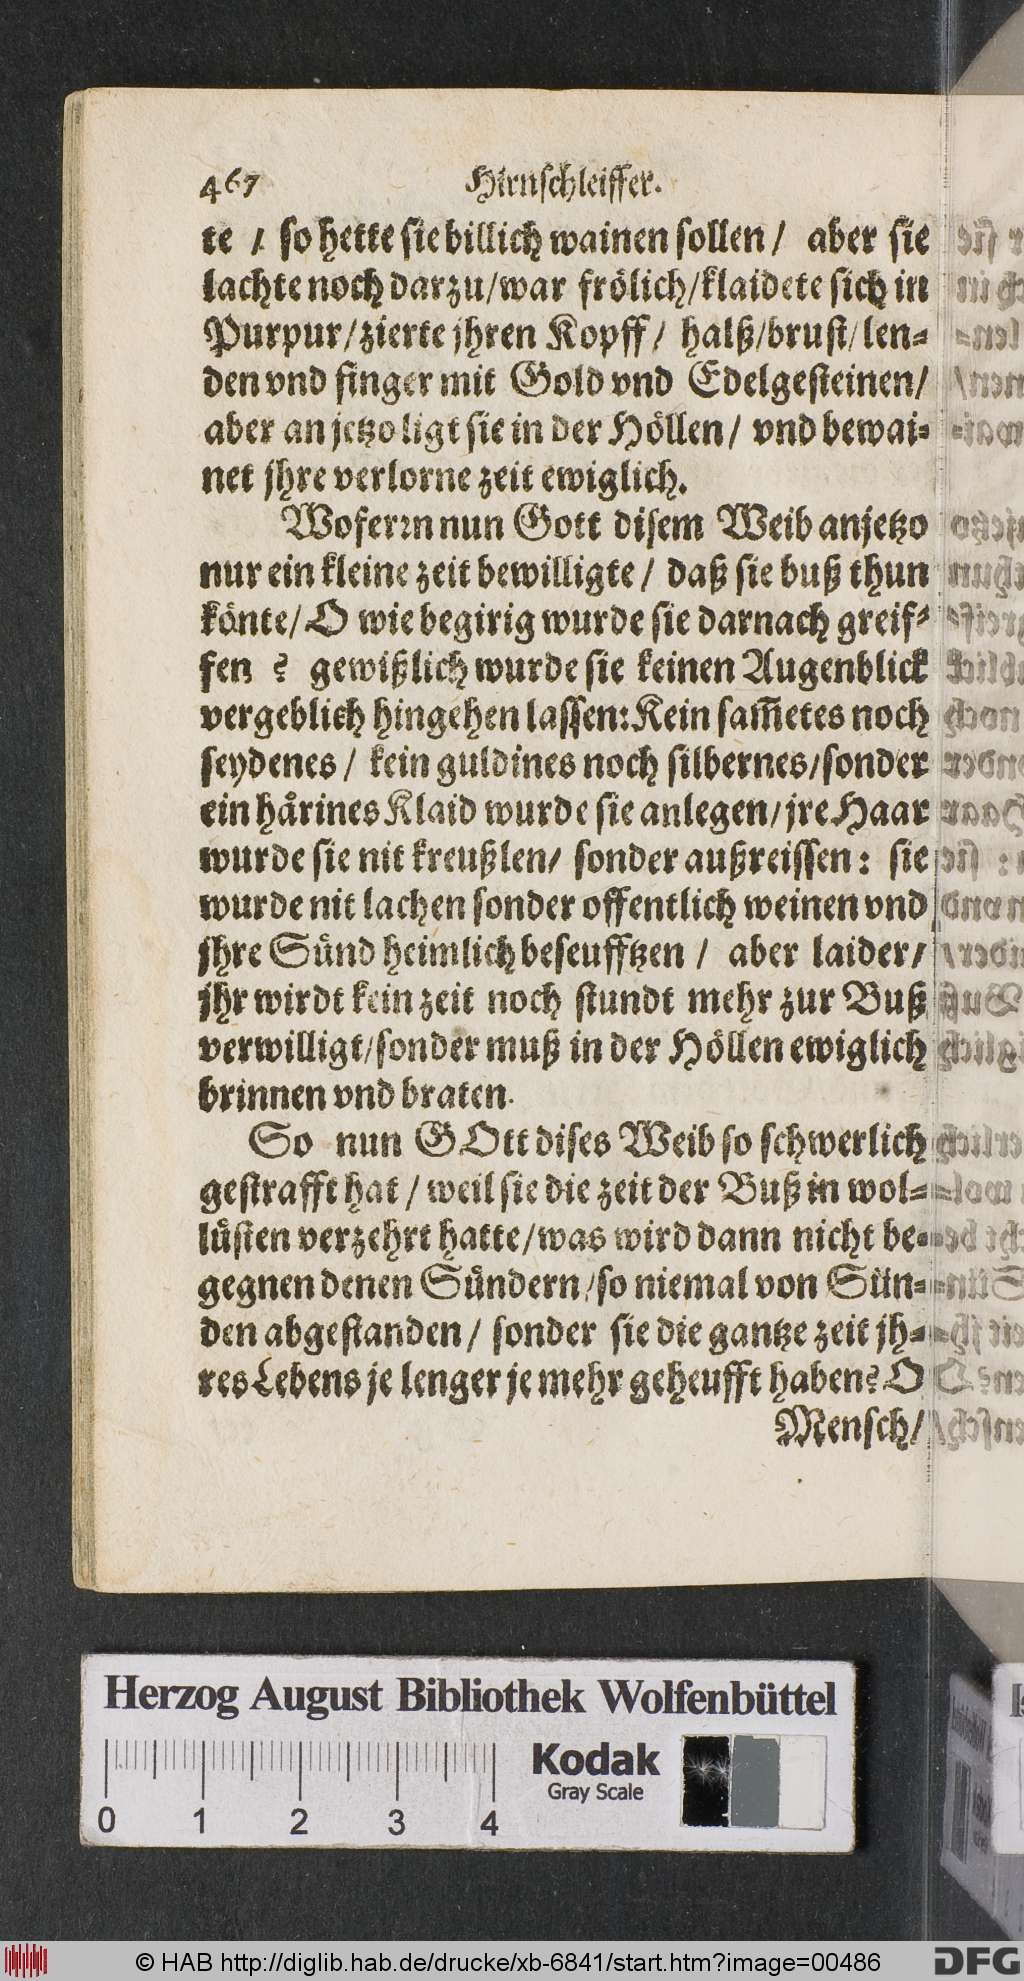 467 Hirnschleiffer.
te / so hette sie billich wainen sollen / aber sie
lachte noch darzu/war frölich/klaidete sich in
Purpur/zierte jhren Kopff/ halß/brust/len-
den vnd finger mit Gold vnd Edelgesteinen/
aber an jetzo ligt sie in der Höllen/ vnd bewai-
net jhre verlorne zeit ewiglich.
Woferrn nun Gott disem Weib anjetzo
nur ein kleine zeit bewilligte / daß sie buß thun
könte/ O wie begirig wurde sie darnach greif-
fen ? gewißlich wurde sie keinen Augenblick
vergeblich hingehen lassen: Kein sam̃etes noch
seydenes / kein guldines noch silbernes/sonder
ein hårines Klaid wurde sie anlegen/ jre Haar
wurde sie nit kreußlen/ sonder außreissen: sie
wurde nit lachen sonder offentlich weinen vnd
jhre Sünd heimlich beseufftzen / aber laider/
jhr wirdt kein zeit noch stundt mehr zur Buß
verwilligt/sonder muß in der Höllen ewiglich
brinnen vnd braten.
So nun GOtt dises Weib so schwerlich
gestrafft hat / weil sie die zeit der Buß in wol-
lüsten verzehrt hatte/was wird dann nicht be-
gegnen denen Sündern/so niemal von Sün-
den abgestanden/ sonder sie die gantze zeit jh-
res Lebens je lenger je mehr geheufft haben? O
Mensch/
Herzog August Bibliothek Wolfenbüttel
Kodak
Gray Scale
0 1 2 3 4
© HAB http://diglib.hab.de/drucke/xb-6841/start.htm?image=00486
DFG